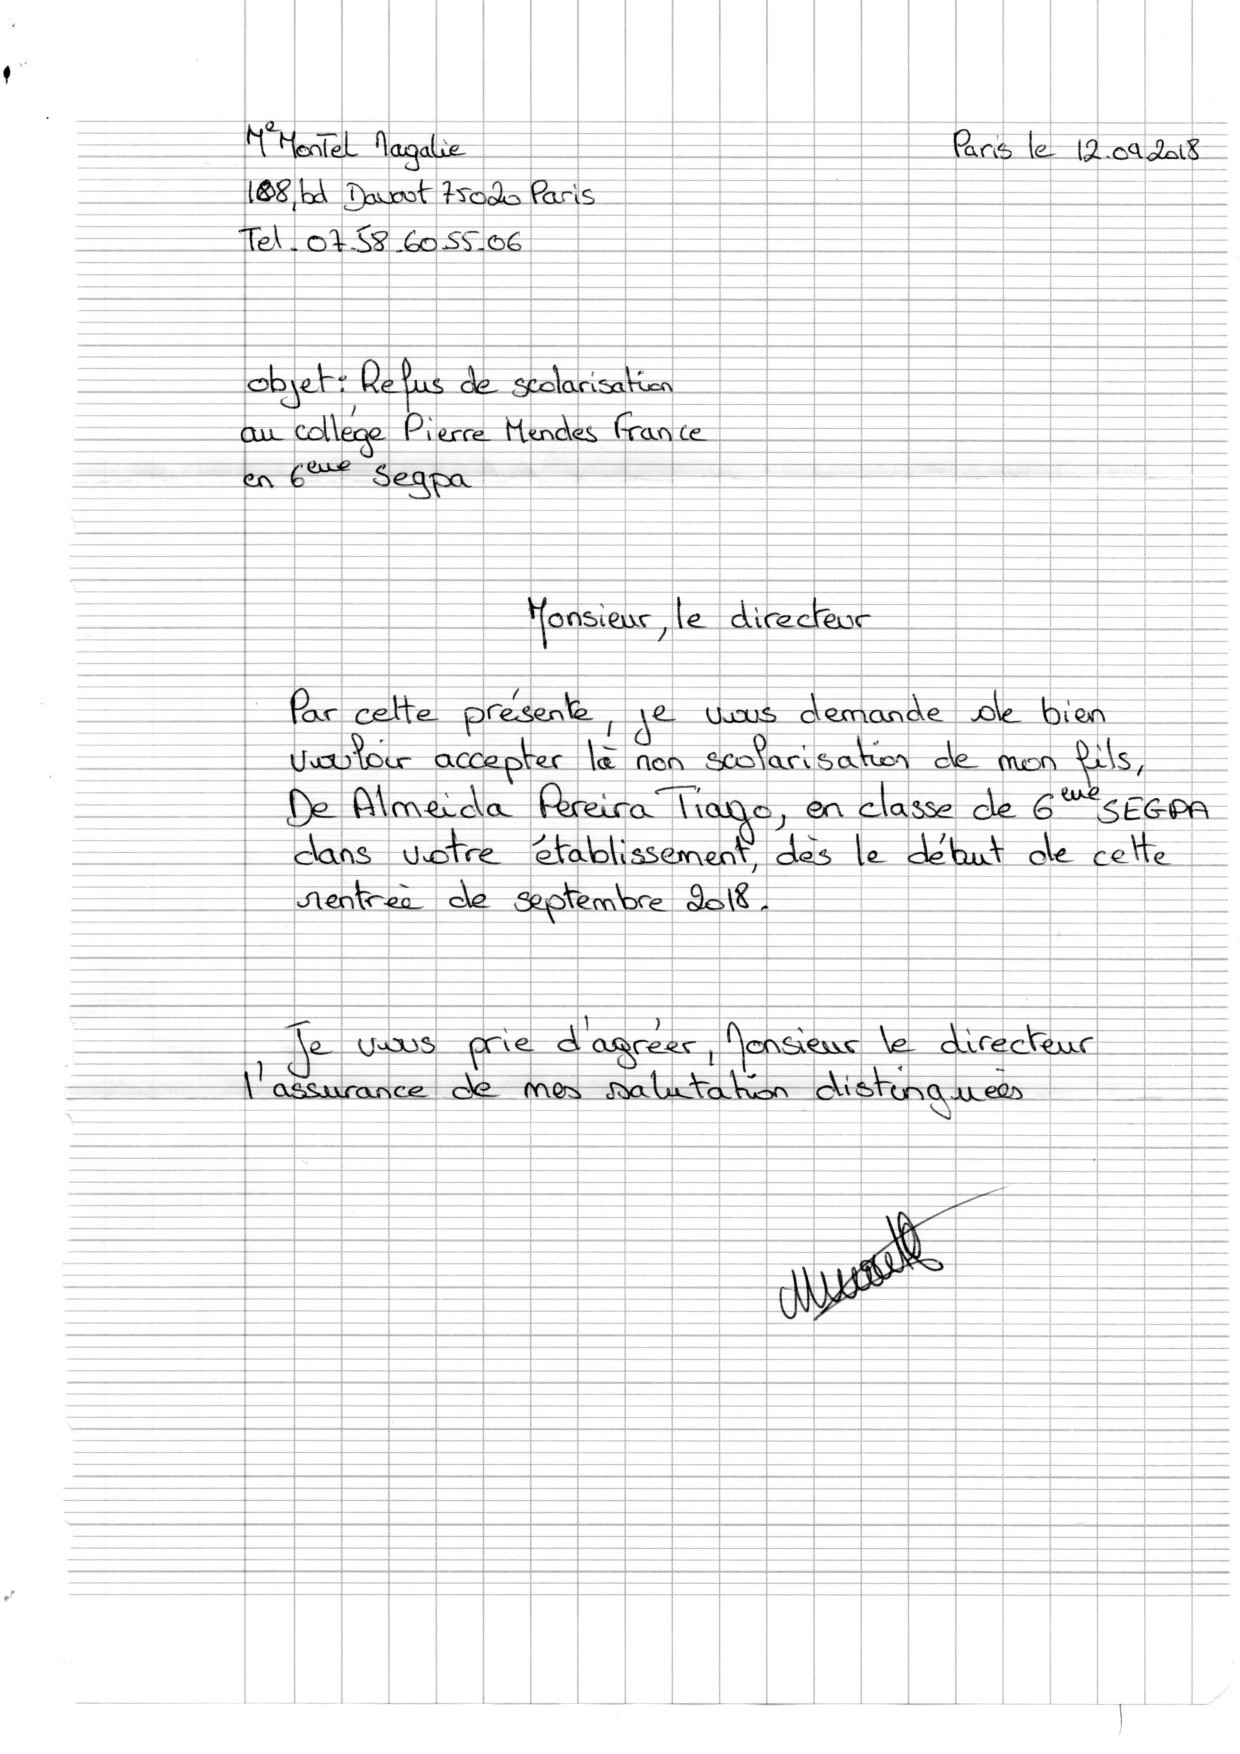 Me Montel Magalie
Paris le 12.09.2018
188, bd Davout 75020 Paris
Tel. 07.58.60.55.06
objet: Refus de scolarisation
au collége Pierre Mendes France
en 6eme Segpa
Monsieur, le directeur
Par cette présente, je vous demande de bien
vouloir accepter là non scolarisation de mon fils,
De Almeida Pereira Tiago, en classe de 6eme SEGPA
dans votre établissement, dès le début de cette
rentreè de septembre 2018.
Je vous prie d'agréer, Monsieur le directeur
l'assurance de mes salutation distingueès